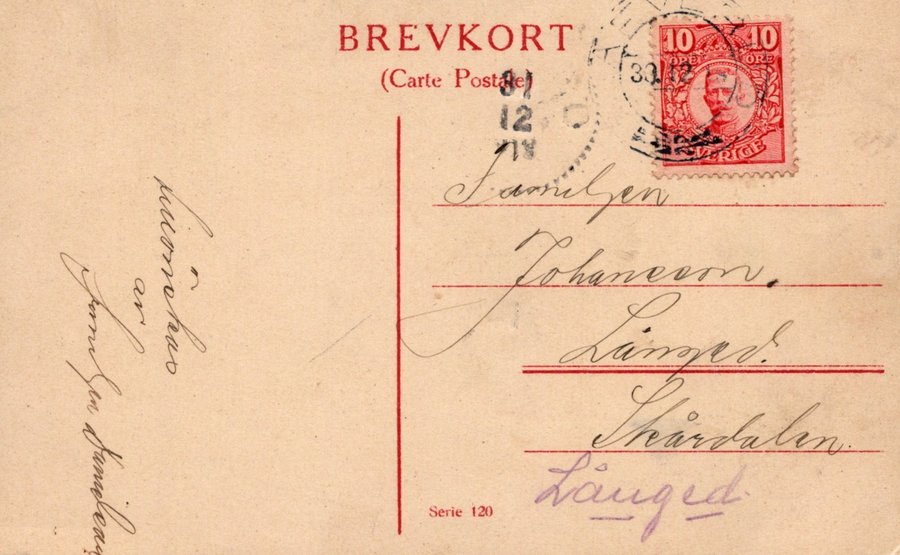 BREVKORT
(Carte Postale)
10 10
ÖRE ÖRE
SVERIGE
30.12
31
12
Familjen
Johansson.
Långed.
Skårdalen.
Långed
Serie 120
tillönskas
av
familjen